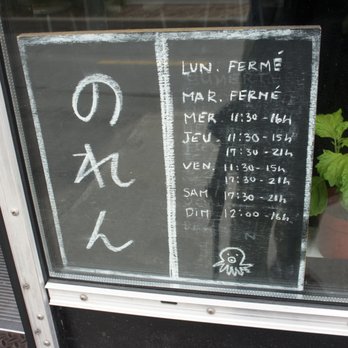 のれん
LUN. FERMÉ
MAR. FERMÉ
MER 11:30-16h
JEU. 11:30-15h
17:30-21h
VEN. 11:30-15h
17:30-21h
SAM 17:30-21h
DIM 12:00-16h